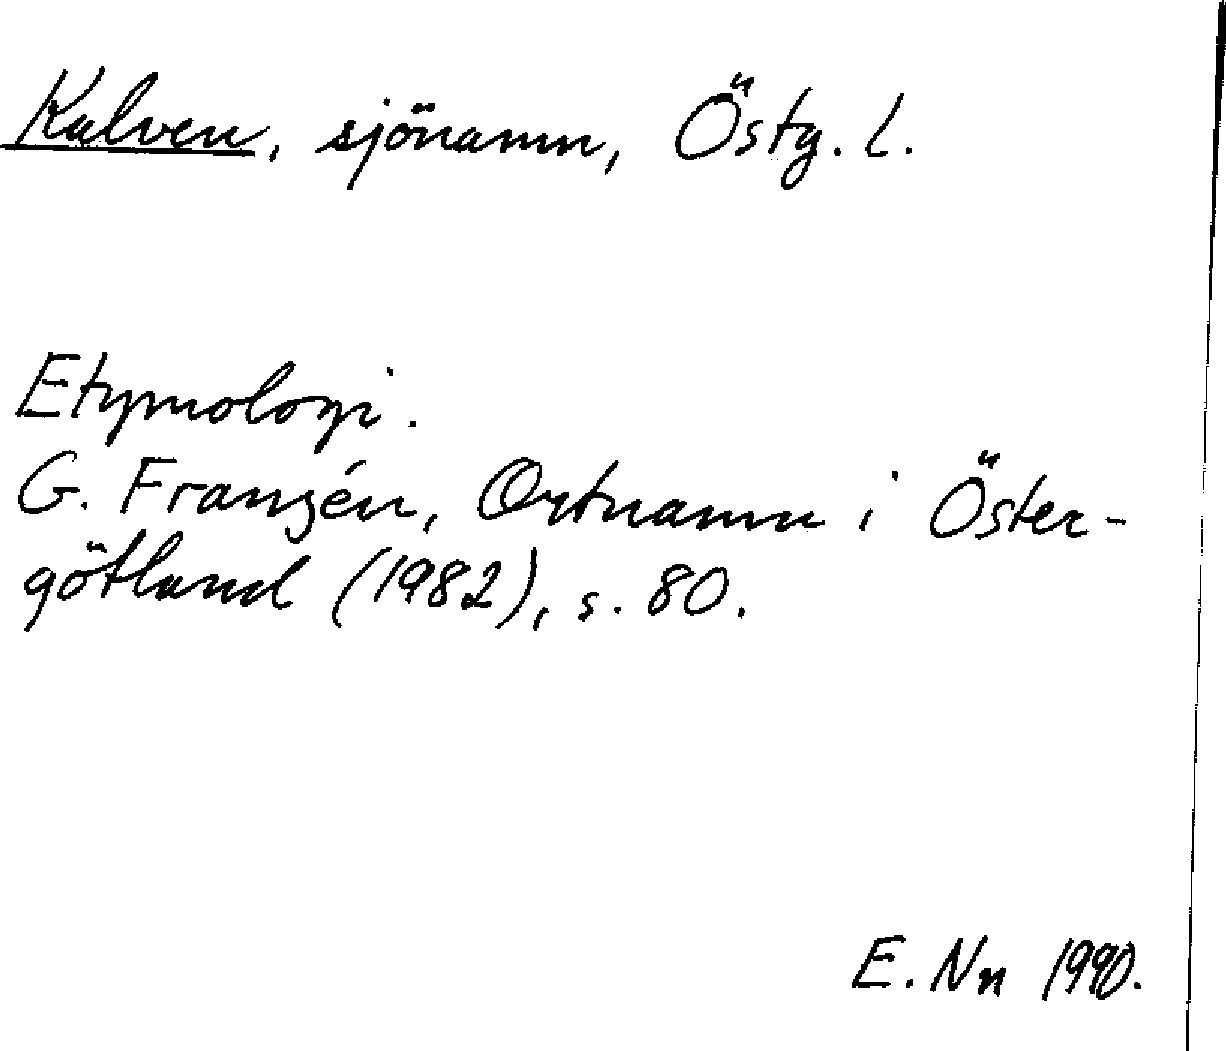 Kalven, sjönamn, Östg. l.
Etymologi.
G. Franzén, Ortnamn i Öster-
götland (1982), s. 80.
E. Nn 1990.